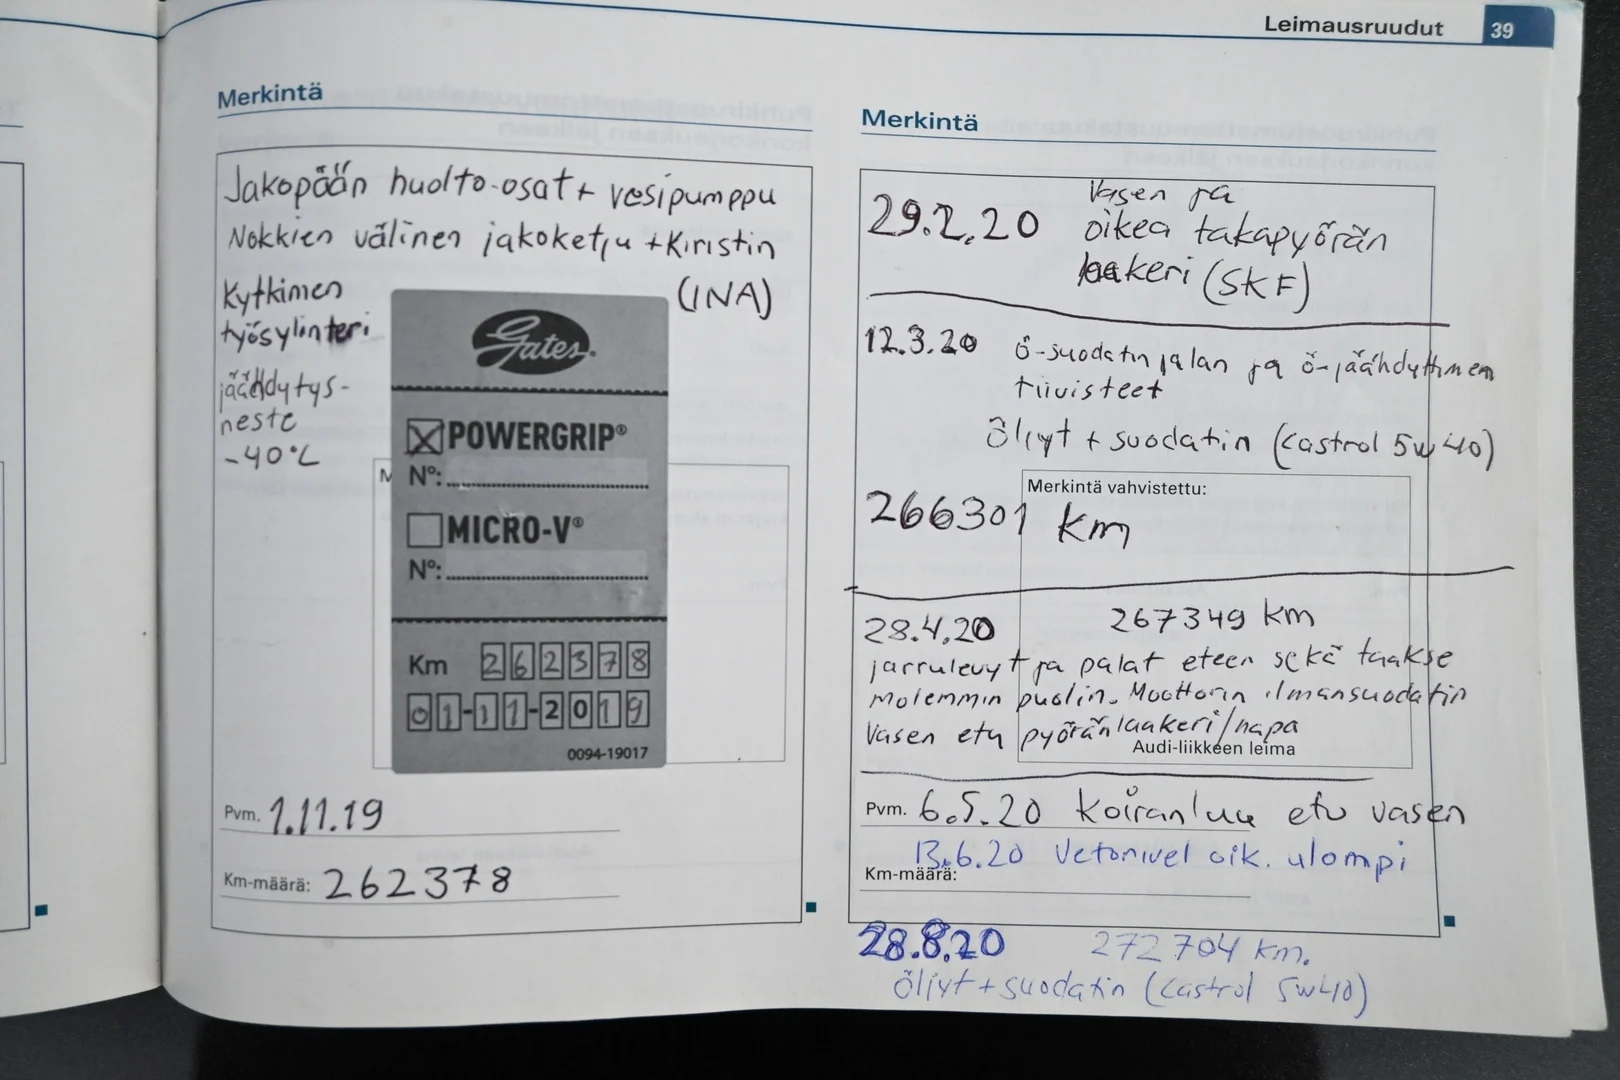 Leimausruudut 39
Merkintä
Jakopään huolto-osat + vesipumppu
Nokkien välinen jakoketju + kiristin
(INA)
Kytkimen
työsylinteri
jäähdytys-
neste
-40°C
Gates
POWERGRIP®
Nº:
MICRO-V®
Nº:
Km 262378
01-11-2019
0094-19017
Pvm. 1.11.19
Km-määrä: 262378
Merkintä
29.2.20 Vasen ja
oikea takapyörän
laakeri (SKF)
12.3.20 Ö-suodatinjalan ja ö-jäähdyttimen
tiivisteet
Öljyt + suodatin (Castrol 5W40)
Merkintä vahvistettu:
266301 km
28.4.20 267349 km
jarrulevyt ja palat eteen sekä taakse
molemmin puolin. Moottorin ilmansuodatin
Vasen etu pyöränlaakeri/napa
Audi-liikkeen leima
Pvm. 6.5.20 Koiranluu etu vasen
13.6.20 Vetonivel oik. ulompi
Km-määrä:
28.8.20 272704 km.
Öljyt + suodatin (Castrol 5W40)